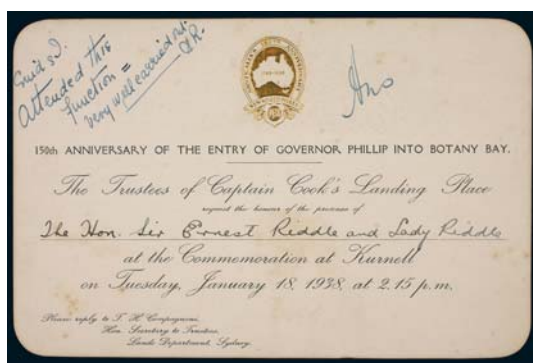 Enid & I.
Attended this
function =
very well carried out.
E.R.
Ans
150th ANNIVERSARY OF THE ENTRY OF GOVERNOR PHILLIP INTO BOTANY BAY.
The Trustees of Captain Cook's Landing Place
request the honour of the presence of
The Hon. Sir Ernest Riddle and Lady Riddle
at the Commemoration at Kurnell
on Tuesday, January 18, 1938, at 2.15 p.m.
Please reply to T. H. Campagnoni,
Hon. Secretary to Trustees,
Lands Department, Sydney.